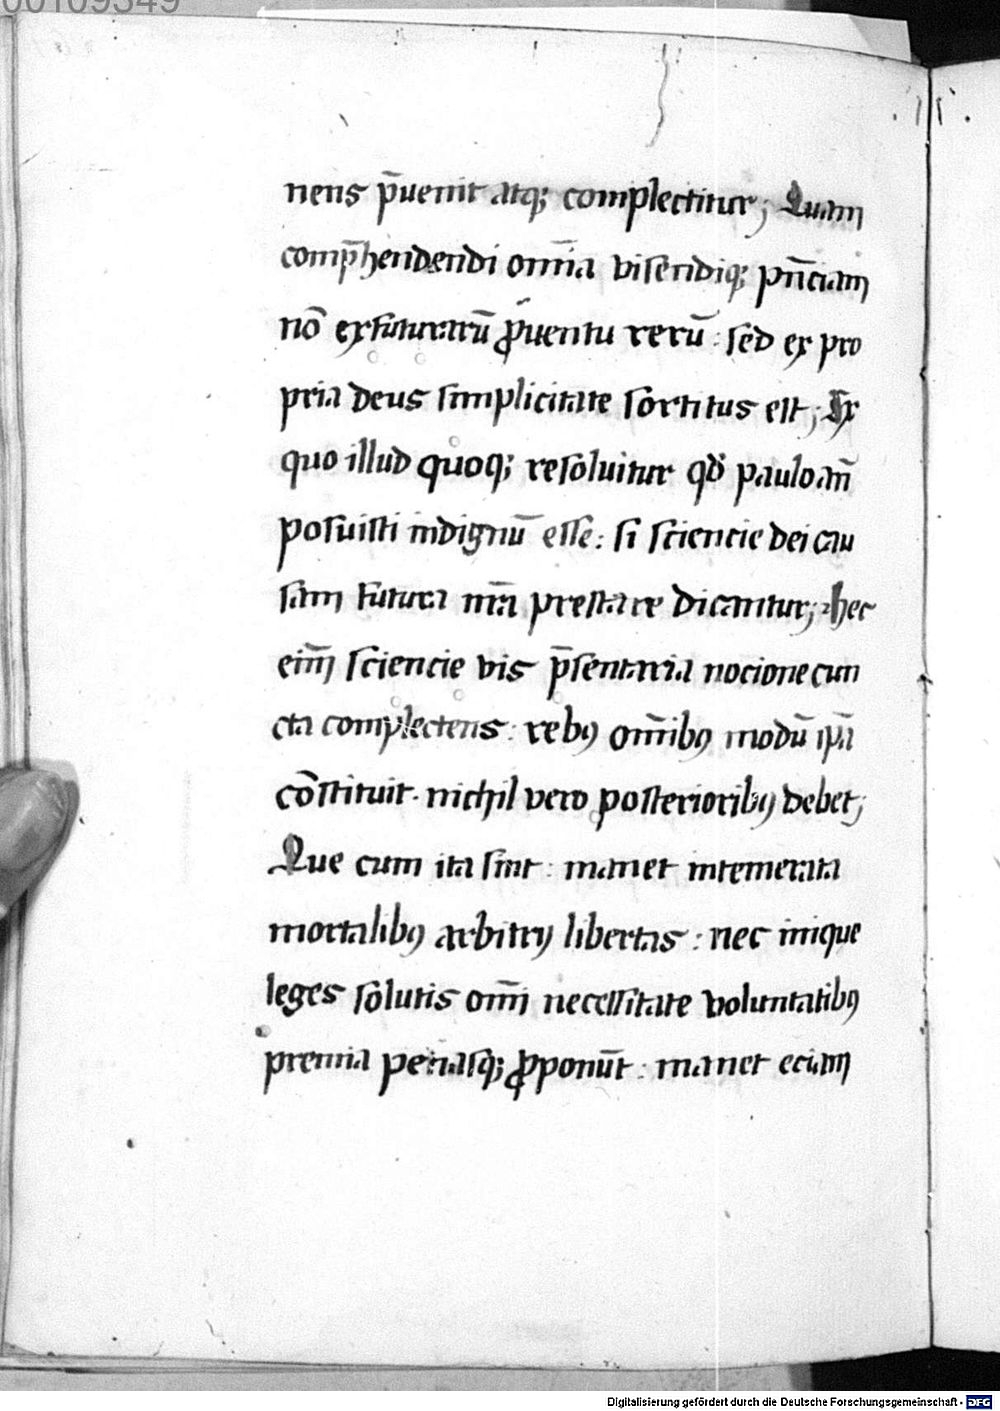 00109349
nens p̄uenit atq; complectitur; Quam
comp̄hendendi om̄ia visendiq; pn̄ciam
nō ex futurarū ꝓuentu rerū : sed ex pro
pria deus simplicitate sortitus est; Ex
quo illud quoq; resoluitur qd̓ paulo an̄
posuisti indignū esse : si sciencie dei cau
sam futura nr̄a prestare dicantur; hec
eni͞m sciencie vis p̄sentaria nocione cun
cta complectens : rebꝰ om̄ibꝰ modū ip̄a
cōstituit . nichil vero posterioribꝰ debet;
Que cum ita sint : manet intemerata
mortalibꝰ arbitrij libertas : nec inique
leges solutis om̄i necessitate voluntatibꝰ
premia penasq; ꝓponūt : manet eciam
Digitalisierung gefördert durch die Deutsche Forschungsgemeinschaft - DFG